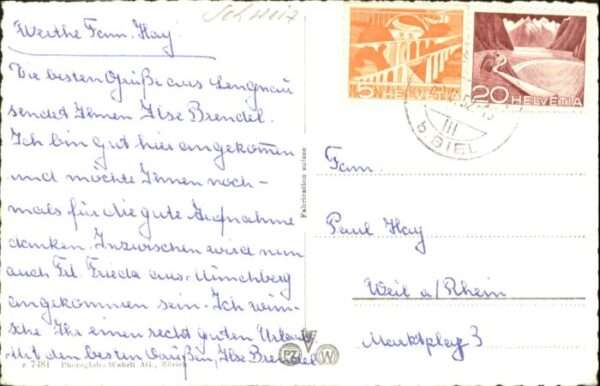 Schweiz
Werthe Fam. Hay!
Die besten Grüße aus Lengnau
sendet Ihnen Ilse Brendel.
Ich bin gut hier angekommen
und möchte Ihnen noch-
mals für die gute Aufnahme
danken. Inzwischen wird nun
auch Frl. Frieda aus Münchberg
angekommen sein. Ich wün-
sche Ihr einen recht guten Urlaub
Mit den besten Grüßen, Ilse Brendel
7481 Photoglob-Wehrli AG., Zürich
Fabrication suisse
PZ W
5 HELVETIA
20 HELVETIA
III
b. BIEL
Fam.
Paul Hay
Weil a/Rhein
Marktplatz 3